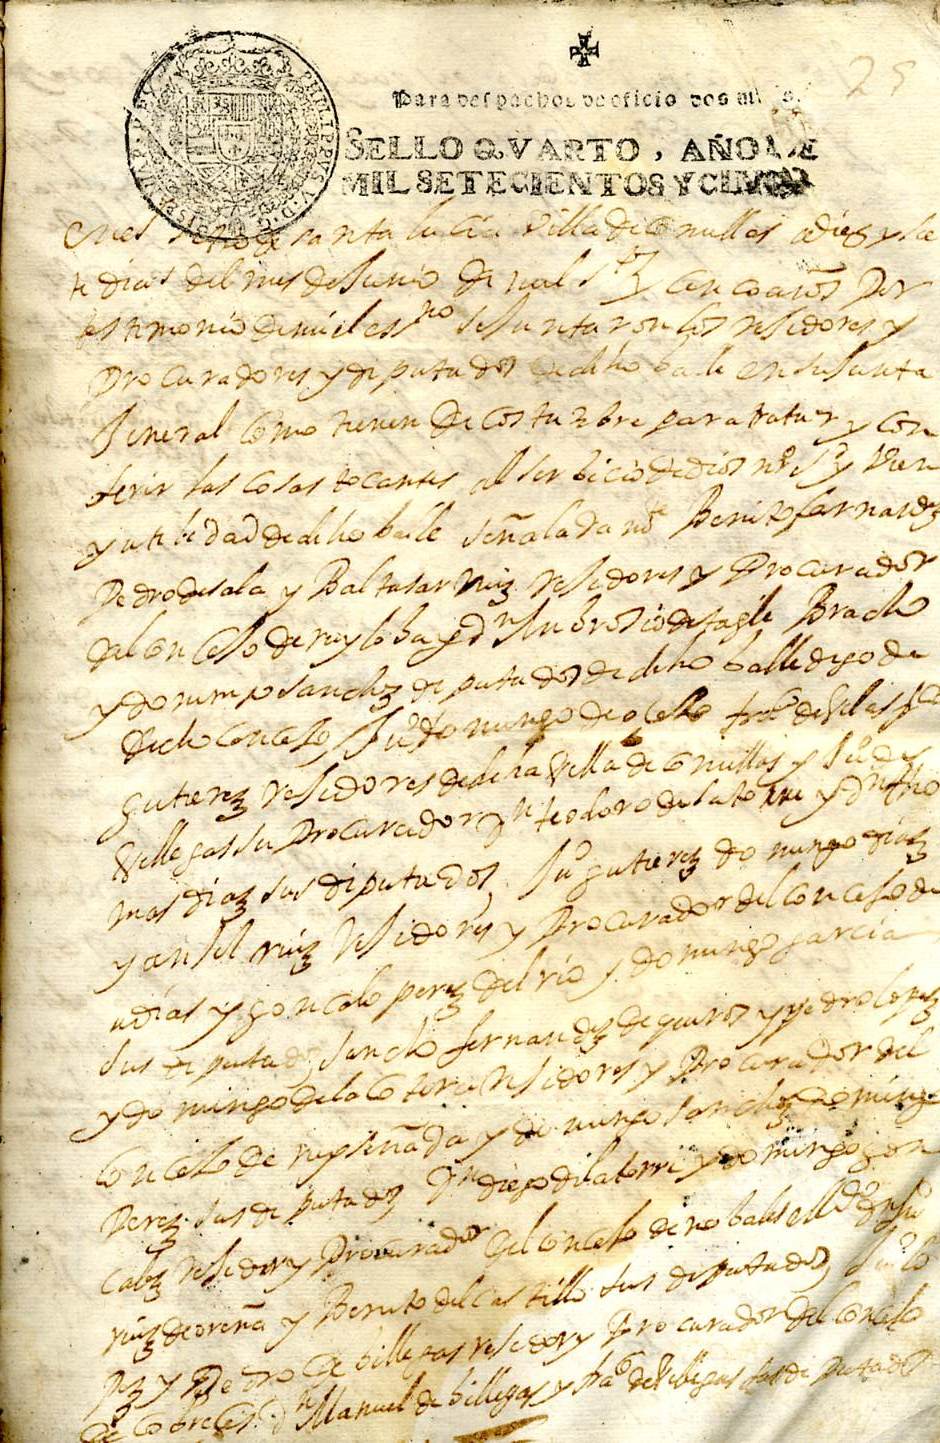 25
Para despachos de oficio dos mrs.
SELLO QVARTO, AÑO DE
MIL SETECIENTOS Y CINCO
PHILIPPUS V D G
en el sitio de santa lucia villa de Comillas a diez y sie
te dias del mes de Junio de mil s.tos y cinco años Por
testimonio de mi el ess.no se Juntaron los rejidores y
Procuradores y diputados de dicho balle en su Junta
Jeneral como tienen de costunbre para tratar y con
ferir las cosas tocantes al serbicio de dios nro. Sr. y vien
y utilidad de dicho balle señaladam.te Benito fernandez
Pedro de sala y Baltasar ruiz rejidores y Procurador
del concejo de ruyloba y dn Anbrosio de tagle Bracho
y domingo sanchez diputados de dicho balle digo de
dicho concejo Ju.o domingo de fr.co de Villegas
gutierez rejidores de dicha Villa de Comillas y Ju.o de
Villegas su Procurador dn teodoro de la torre y dn tho
mas diaz sus diputados, Ju.o gutierez domingo diaz
y anjel ruiz rejidores y Procurador del concejo de
udias y goncalo perez del rio y domingo garcia
sus diputados, sancho fernandez de quiros y pedro lopez
y domingo de la cotera rejidores y Procurador del
concejo de ruyseñada y domingo sanchez domingo
Perez sus diputados Dn diego de la torre y domingo gon
calez rejidor y Procurador del concejo de nobales el l.do dn Ju.o
ruiz de oreña y Benito del castillo sus diputados, Ju.o lo
pez y Pedro de billegas rejidor y Procurador del concejo
de Cobreces dn Manuel de billegas y fra.co de Villegas sus diputados